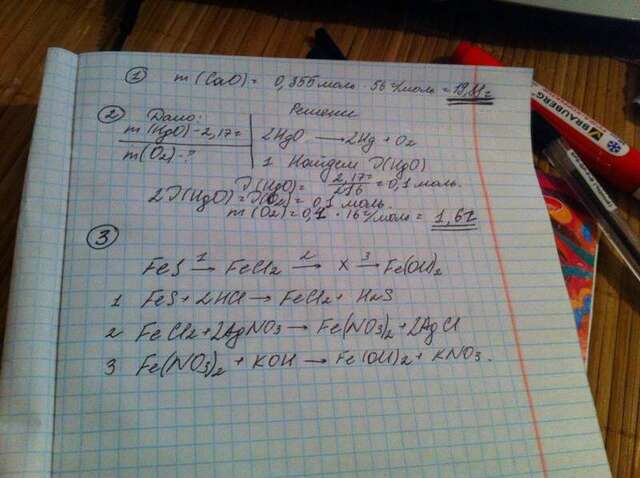 ① m(CaO) = 0,355 моль · 56 г/моль = 19,88г
② Дано:
Решение
m(HgO) - 2,17г
m(O2) - ?
2HgO → 2Hg + O2
1 Найдем ν(HgO)
ν(HgO) = 2,17г / 216 = 0,1 моль.
2ν(HgO) = ν(O2) = 0,1 моль.
m(O2) = 0,1 · 16 г/моль = 1,6г
③
FeS →1 FeCl2 →2 X →3 Fe(OH)2
1 FeS + 2HCl → FeCl2 + H2S
2 FeCl2 + 2AgNO3 → Fe(NO3)2 + 2AgCl
3 Fe(NO3)2 + KOH → Fe(OH)2 + KNO3.
BRAUBERG